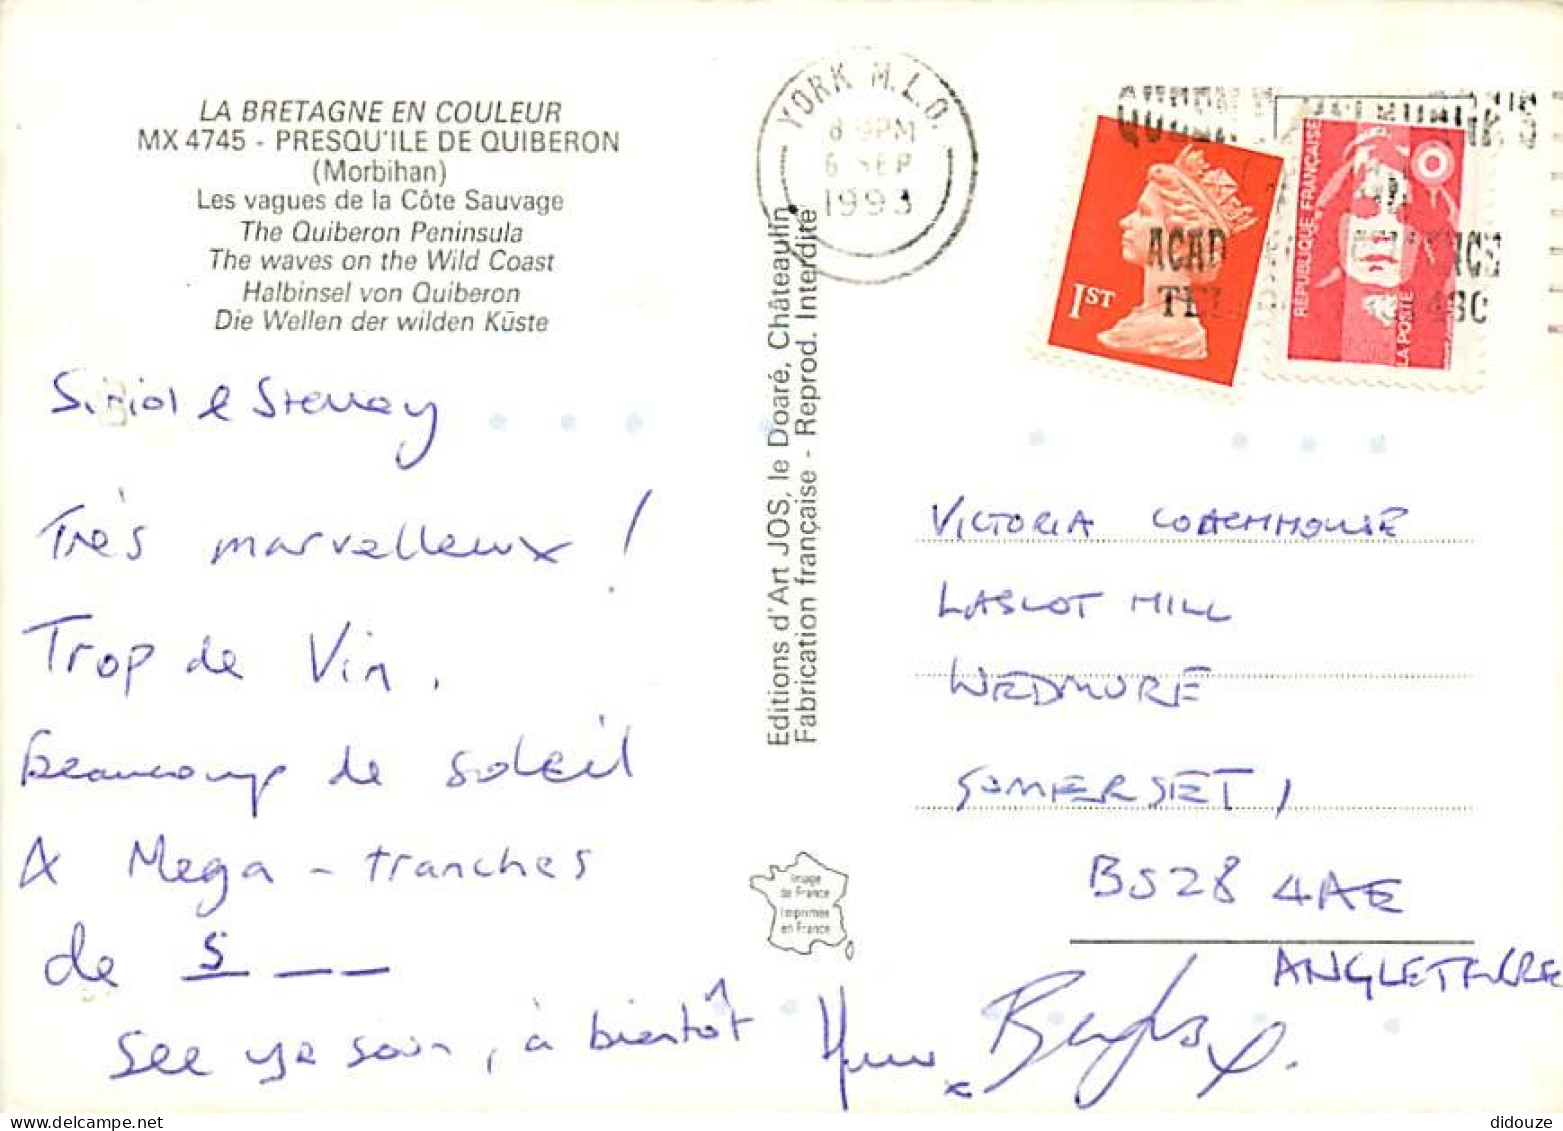 LA BRETAGNE EN COULEUR
MX 4745 - PRESQU'ILE DE QUIBERON
(Morbihan)
Les vagues de la Côte Sauvage
The Quiberon Peninsula
The waves on the Wild Coast
Halbinsel von Quiberon
Die Wellen der wilden Küste
Très marvelleux !
Trop de Vin,
beaucoup de soleil
A Mega - tranches
de S _ _
See ya soon, à bientôt
Editions d'Art JOS, le Doaré, Châteaulin
Fabrication française - Reprod. Interdite
Image
de France
Imprimée
en France
YORK M.L.O.
6 SEP
1993
1ST
RÉPUBLIQUE FRANÇAISE
LA POSTE
VICTORIA COACHHOUSE
LASCOT HILL
WEDMORE
SOMERSET,
BS28 4AE
ANGLETERRE
didouze